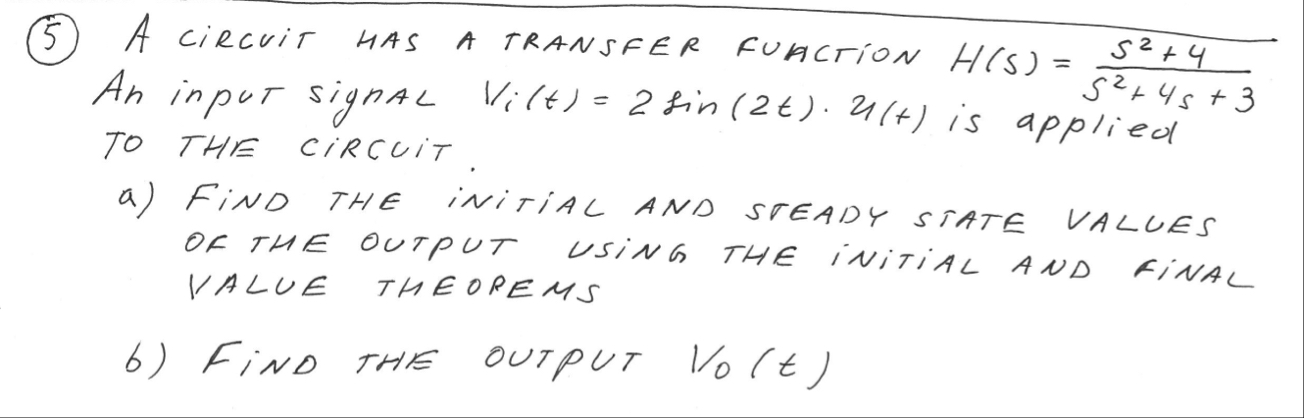 5 A CIRCUIT HAS A TRANSFER FUNCTION H(S) = \frac{S^2+4}{S^2+4S+3}
An input signAL Vi(t) = 2 sin(2t). u(t) is applied
TO THE CIRCUIT.
a) FIND THE INITIAL AND STEADY STATE VALUES
OF THE OUTPUT USING THE INITIAL AND FINAL
VALUE THEOREMS
b) FIND THE OUTPUT Vo(t)